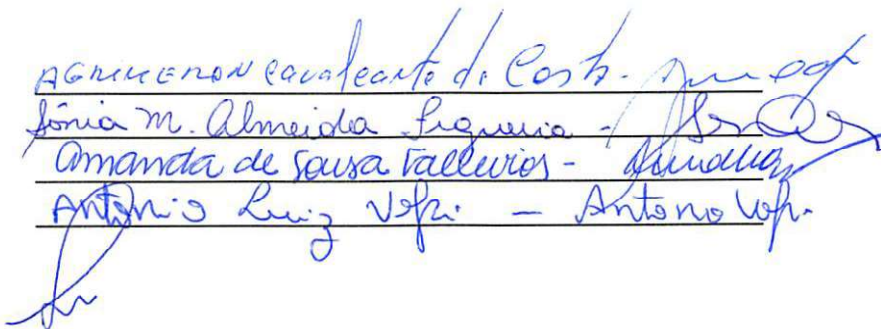 AGRIMERON Cavalcante da Costa -
Sônia M. Almeida Siqueira -
Amanda de Sousa Tallevios -
Antonio Luiz Vofri - Antono Vofri